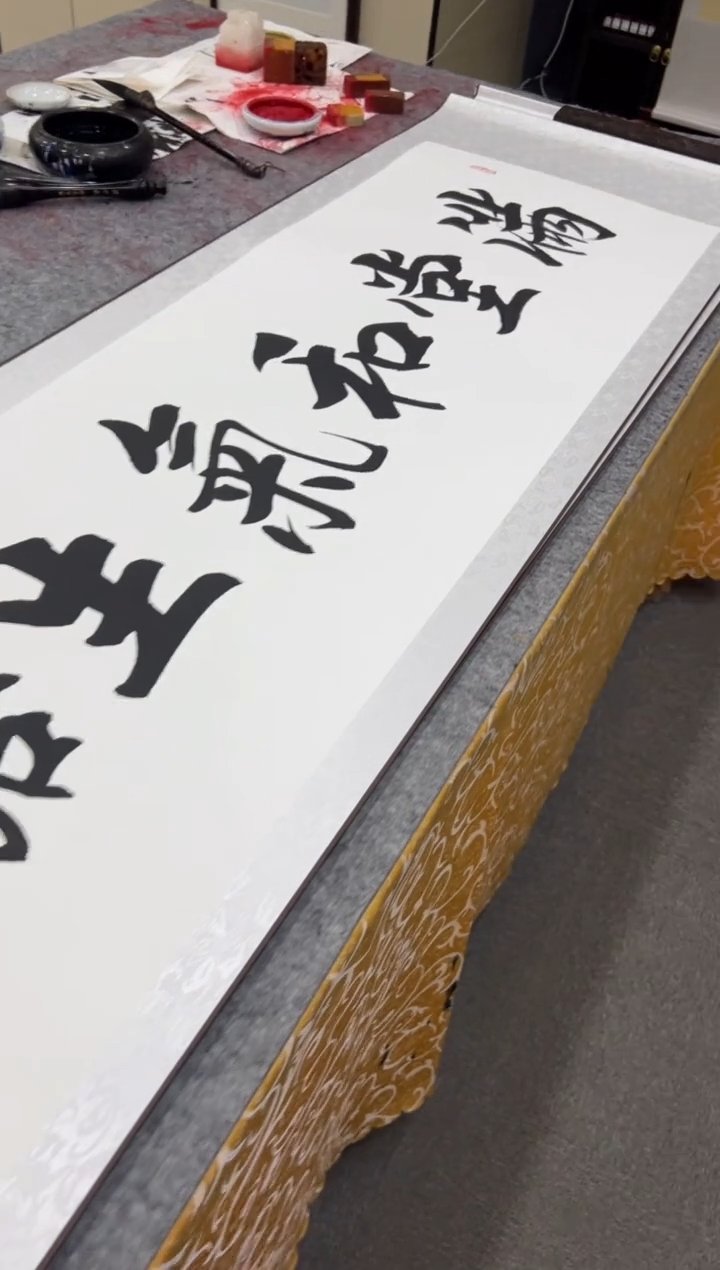 滿堂和氣生